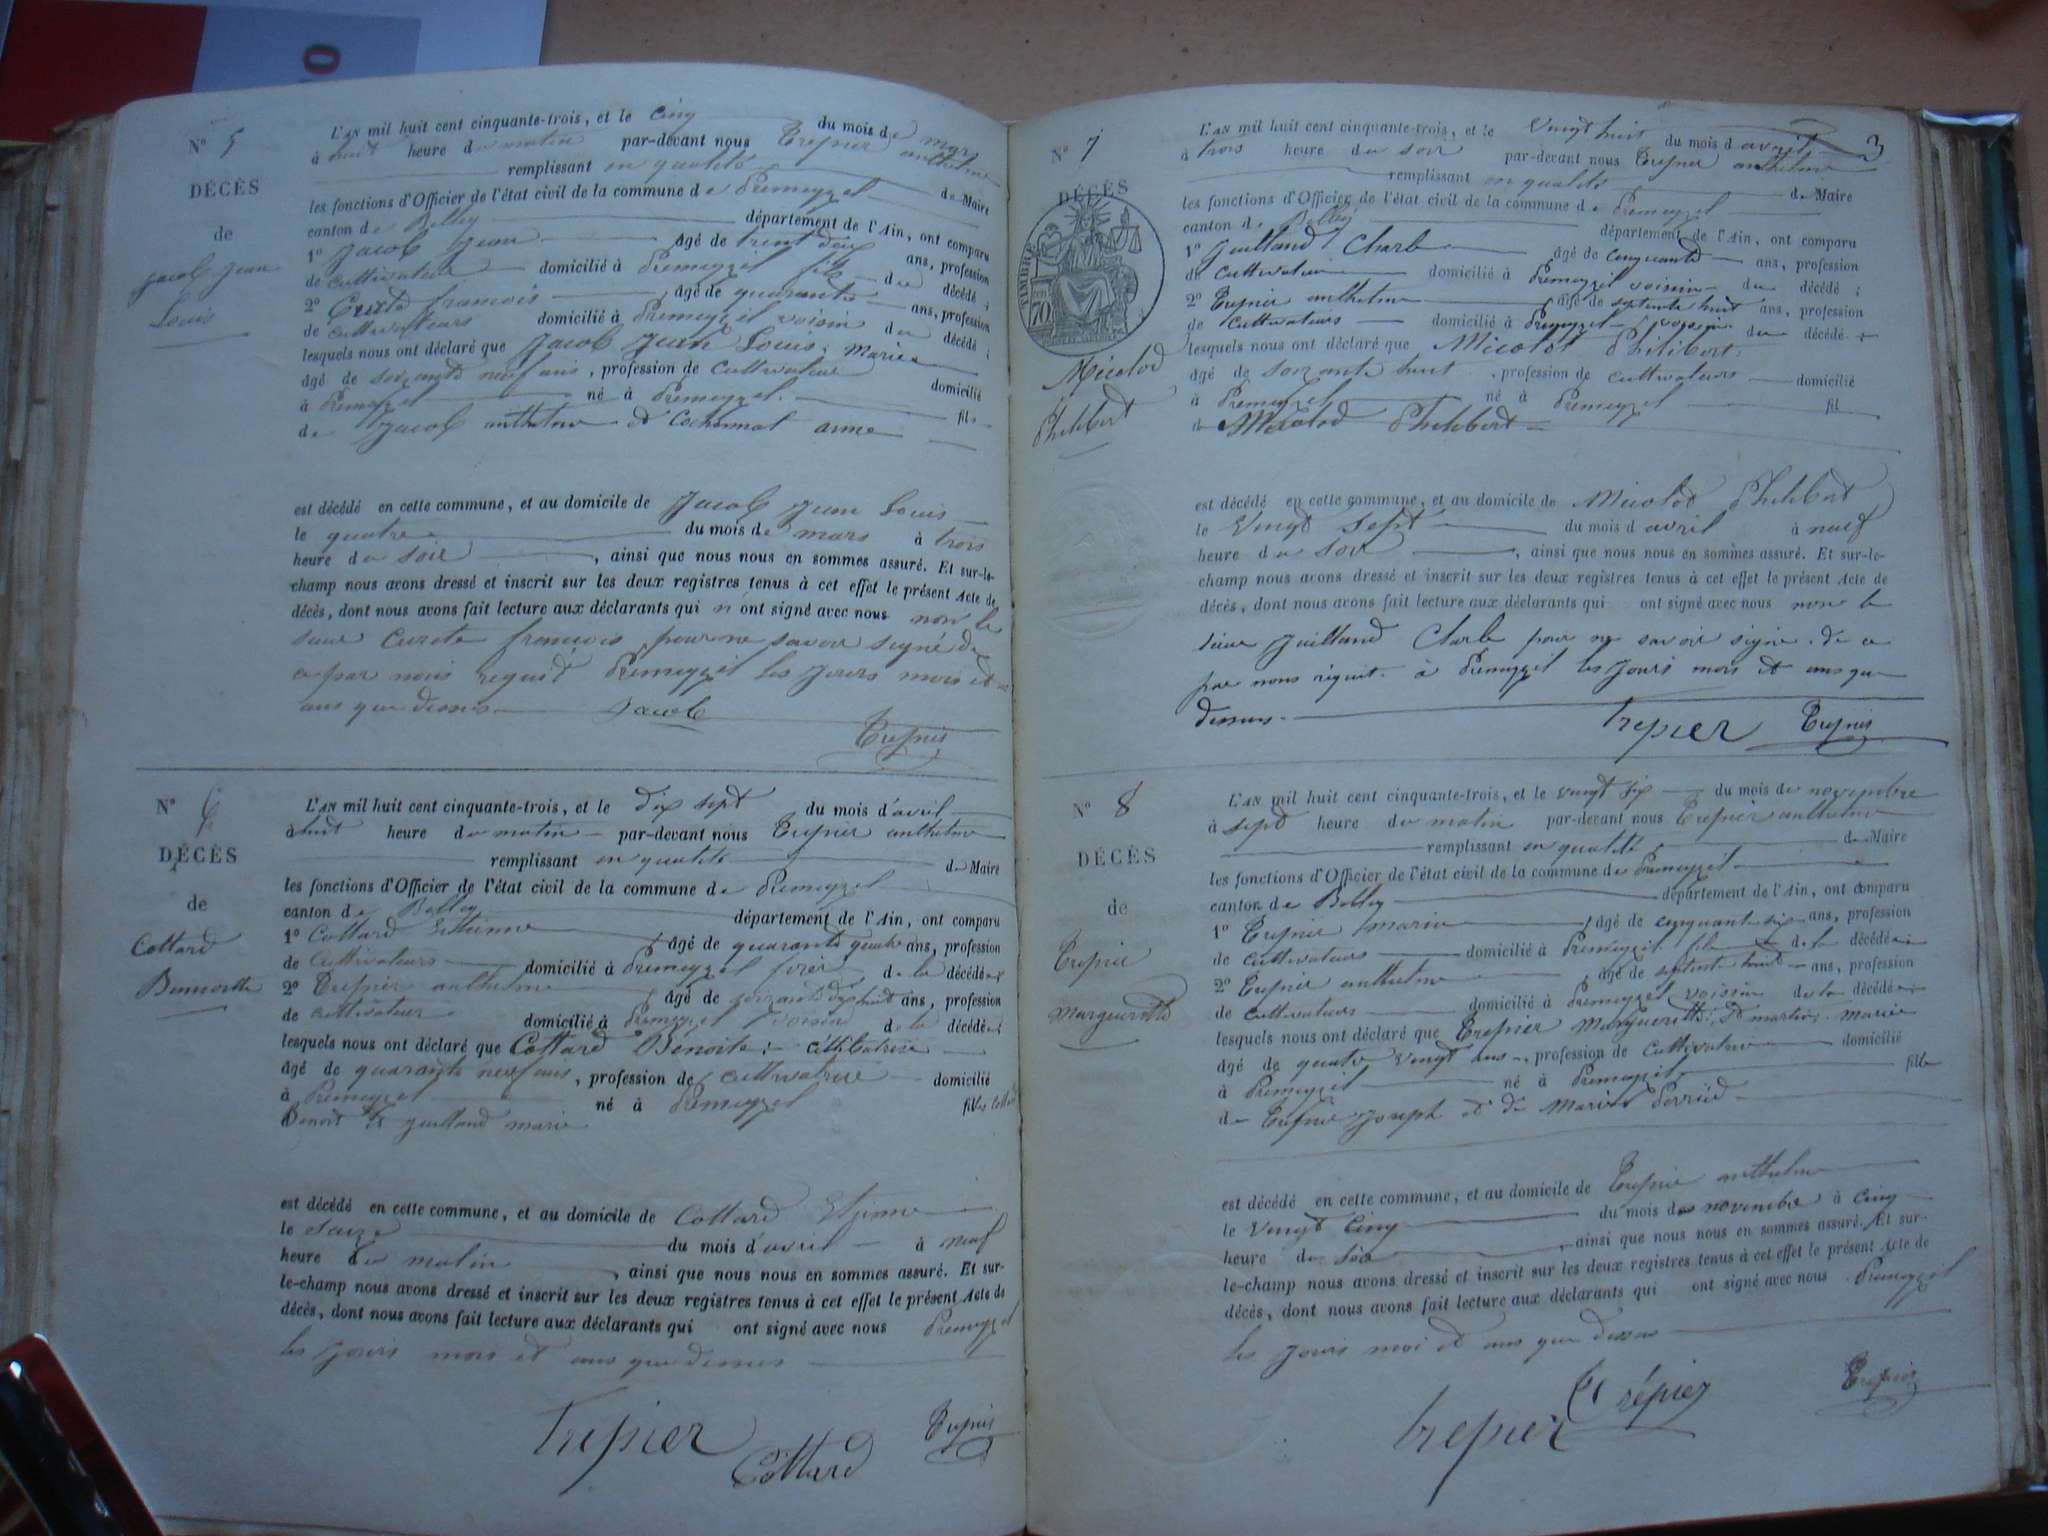 N° 5
DÉCÈS
de
Jacob Jean
Louis
L'AN mil huit cent cinquante-trois, et le cinq du mois de mars
à huit heure du matin par-devant nous Trepier anthelme
remplissant en qualité de Maire
les fonctions d'Officier de l'état civil de la commune de Premeyzel
canton de Belley département de l'Ain, ont comparu
1° Jacob Jean âgé de trent deux ans, profession
de cultivateur domicilié à Premeyzel fils du décédé ;
2° francois âgé de quarante ans, profession
de cultivateurs domicilié à Premeyzel voisin du décédé ;
lesquels nous ont déclaré que Jacob Jean Louis, Marié
âgé de soixante neuf ans, profession de cultivateur domicilié
à Premeyzel né à Premeyzel fils
de Jacob anthelme et Cochonnat anne
est décédé en cette commune, et au domicile de Jacob Jean Louis
le quatre du mois de mars à trois
heure du soir, ainsi que nous nous en sommes assuré. Et sur-le-
champ nous avons dressé et inscrit sur les deux registres tenus à cet effet le présent Acte de
décès, dont nous avons fait lecture aux déclarants qui n'ont signé avec nous non le
sieur francois pour ne savoir signé de
ce par nous requit Premeyzel les jours mois et
ans que dessus Jacob
Trepier
N° 6
DÉCÈS
de
Cottard
L'AN mil huit cent cinquante-trois, et le dix sept du mois d'avril
à huit heure du matin par-devant nous Trepier anthelme
remplissant en qualité de Maire
les fonctions d'Officier de l'état civil de la commune de Premeyzel
canton de Belley département de l'Ain, ont comparu
1° Cottard Etienne âgé de quarante quatre ans, profession
de cultivateurs domicilié à Premeyzel frère de la décédée
2° Trepier anthelme âgé de soixante dix huit ans, profession
de cultivateur domicilié à Premeyzel voisin de la décédée
lesquels nous ont déclaré que Cottard Benoite ; célibatrise
âgé de quarante neuf ans, profession de cultivatrise domicilié
à Premeyzel né à Premeyzel
Benoit et juilland marie
est décédé en cette commune, et au domicile de Cottard Etienne
le saize du mois d'avril à neuf
heure du matin, ainsi que nous nous en sommes assuré. Et sur-
le-champ nous avons dressé et inscrit sur les deux registres tenus à cet effet le présent Acte de
décès, dont nous avons fait lecture aux déclarants qui ont signé avec nous Premeyzel
les jours mois et ans que dessus
Trepier Cottard Trepier
3
N° 7
DÉCÈS
TIMBRE
70
Micolod
Philibert
L'AN mil huit cent cinquante-trois, et le vingt huit du mois d avril
à trois heure du soir par-devant nous Trepier anthelme
remplissant en qualité de Maire
les fonctions d'Officier de l'état civil de la commune de Premeyzel
canton de Belley département de l'Ain, ont comparu
1° juilland Charle âgé de cinquante ans, profession
de cultivateur domicilié à Premeyzel voisin du décédé ;
2° Trepier anthelme âgé de septente huit ans, profession
de cultivateurs domicilié à Premeyzel voisin du décédé
lesquels nous ont déclaré que Micolod Philibert,
âgé de soixante huit, profession de cultivateurs domicilié
à Premeyzel né à Premeyzel fil
d Micolod Philibert
est décédé en cette commune, et au domicile de Micolod Philibert
le vingt sept du mois d avril à neuf
heure du soir, ainsi que nous nous en sommes assuré. Et sur-le-
champ nous avons dressé et inscrit sur les deux registres tenus à cet effet le présent Acte de
décès, dont nous avons fait lecture aux déclarants qui ont signé avec nous non le
sieur juilland Charle pour ne savoir signe. de ce
par nous réquit. à Premeyzel les jours mois et ans que
dessus. Trepier Trepier
N° 8
DÉCÈS
de
Trepier
Margueritte
L'AN mil huit cent cinquante-trois, et le vingt six du mois de novembre
à sept heure du matin par-devant nous Trepier anthelme
remplissant en qualité de Maire
les fonctions d'Officier de l'état civil de la commune de Premeyzel
canton de Belley département de l'Ain, ont comparu
1° Trepier marin âgé de cinquant six ans, profession
de cultivateurs domicilié à Premeyzel de la décédée
2° Trepier anthelme âgé de septente huit ans, profession
de cultivateurs domicilié à Premeyzel voisin de la décédée
lesquels nous ont déclaré que Trepier Margueritte
âgé de quatre vingt ans, profession de cultivatrise domicilié
à Premeyzel né à Premeyzel fille
de Trepier Joseph et de Marie
est décédé en cette commune, et au domicile de Trepier anthelme
le vingt cinq du mois de novembre à cinq
heure du soir, ainsi que nous nous en sommes assuré. Et sur-
le-champ nous avons dressé et inscrit sur les deux registres tenus à cet effet le présent Acte de
décès, dont nous avons fait lecture aux déclarants qui ont signé avec nous Premeyzel
les jours moi et ans que dessus
trepier Trépier Trepier